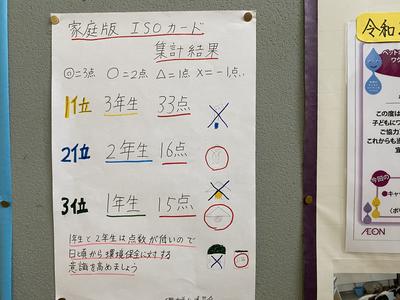 家庭版 ISOカード
集計結果
◎=3点 ○=2点 △=1点 ×=-1点
1位 3年生 33点
2位 2年生 16点
3位 1年生 15点
1年生と2年生は点数が低いので
日頃から環境保全に対する
意識を高めましょう
令和
ペット
ワク
この度は
子どもにワ
ご協力
これからも
今回の
AEON